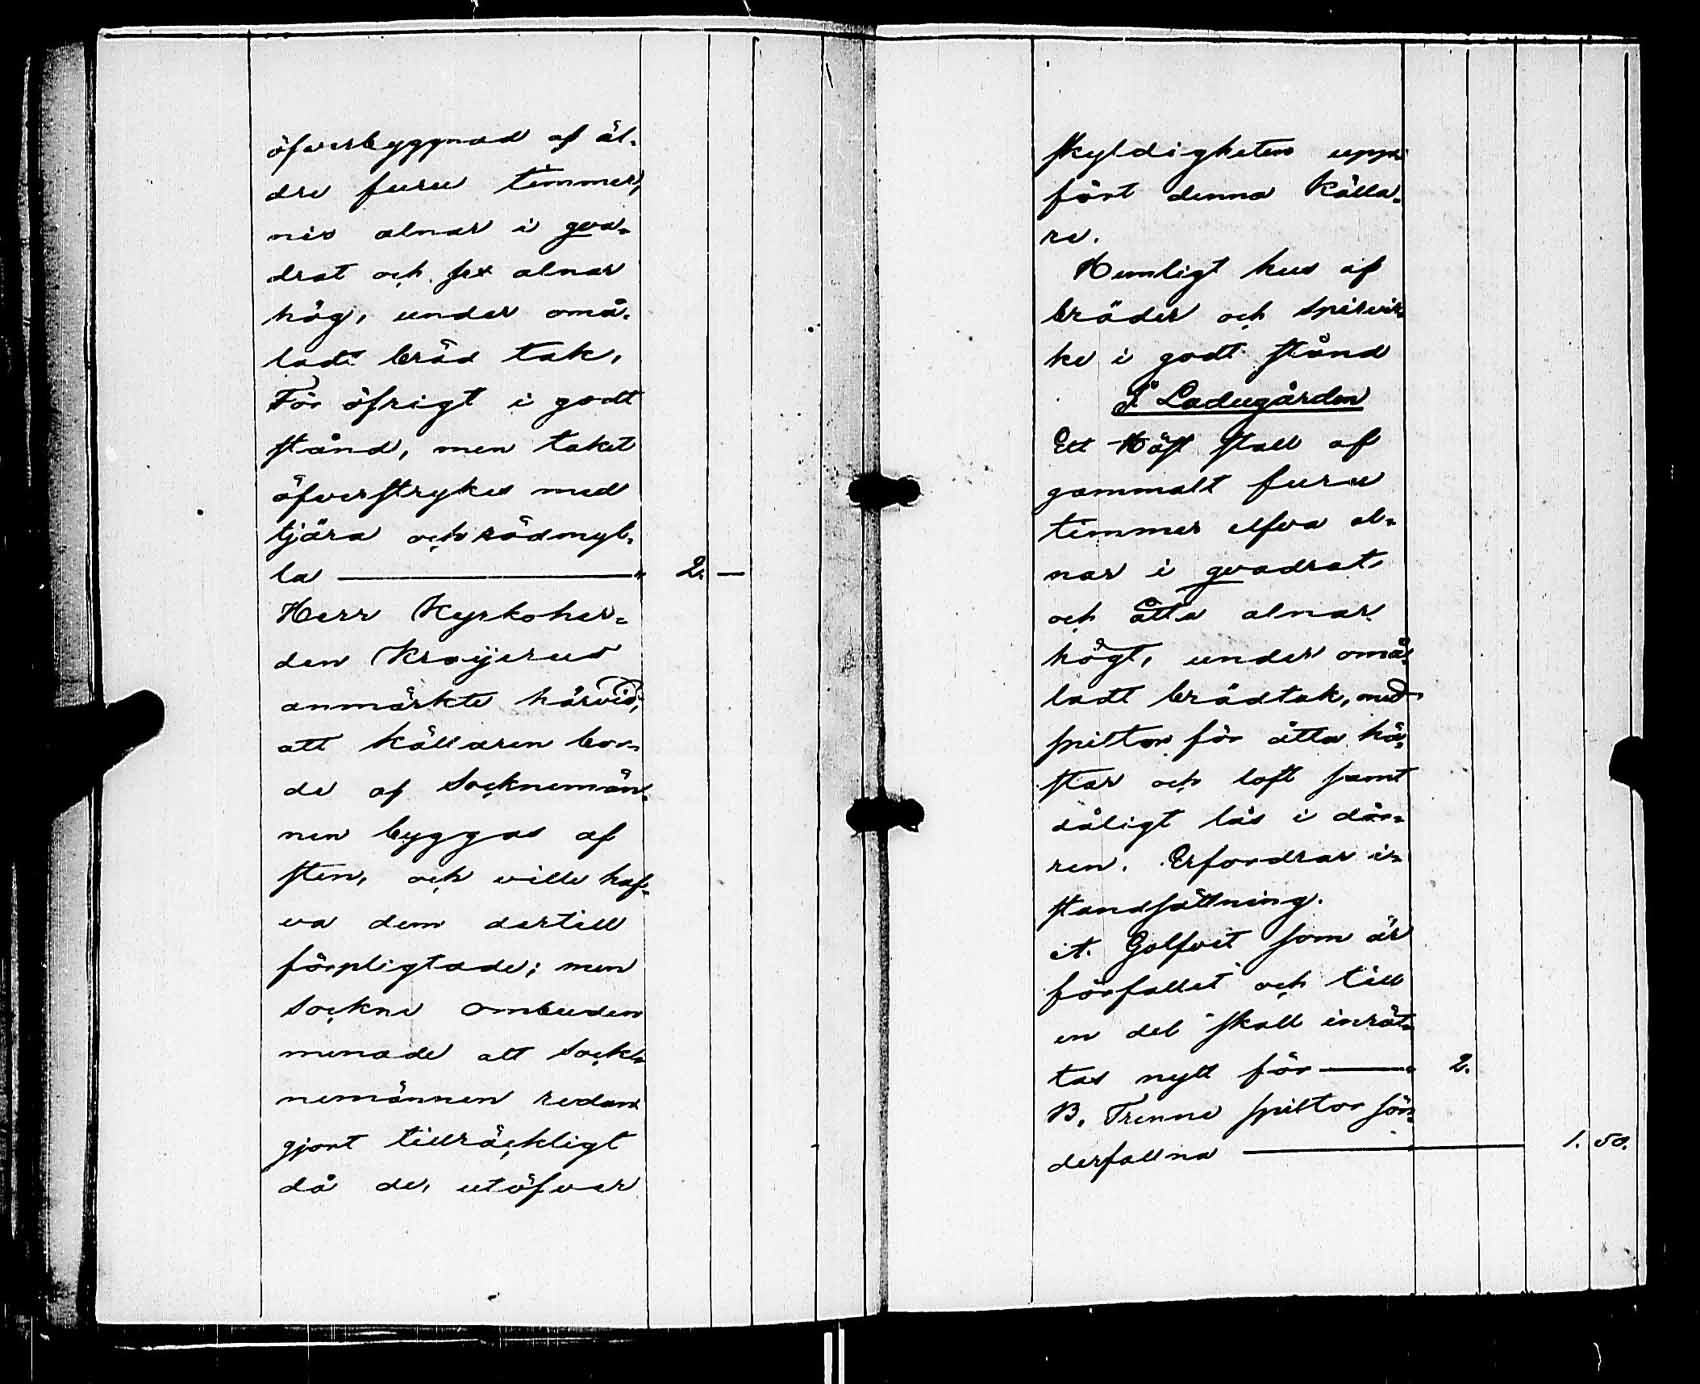 öfverbyggnad af äl-
dre furu timmer,
nio alnar i qva-
drat och sex alnar
hög, under omå-
ladt bräd tak,
För öfrigt i godt
stånd, men taket
öfverstrykes med
tjära och rödmyl-
la — " 2. —
Herr Kyrkoher-
den Kroijerus
anmärkte härvid,
att källaren bor-
de af Socknemän-
nen byggas af
sten, och ville haf-
va dem dertill
förpligtade; men
Sockne ombuden
menade att Sock-
nemännen redan
gjort tillräckligt
då de, utöfver
skyldigheten upp-
fört denna källa-
re.
Hemligt hus af
bräder och spirvir-
ke i godt stånd
I Ladugården
Ett Häst stall af
gammalt furu
timmer elfva al-
nar i qvadrat
och åtta alnar
högt, under omå-
ladt brädtak, med
spiltor för åtta hä-
star och loft samt
dåligt lås i dör-
ren. Erfordrar i-
ståndsättning.
A. Golfvet som är
förfallet och till
en del skall inrät-
tas nytt för — 2.
B. Trenne spiltor sön-
derfallna — 1. 50.